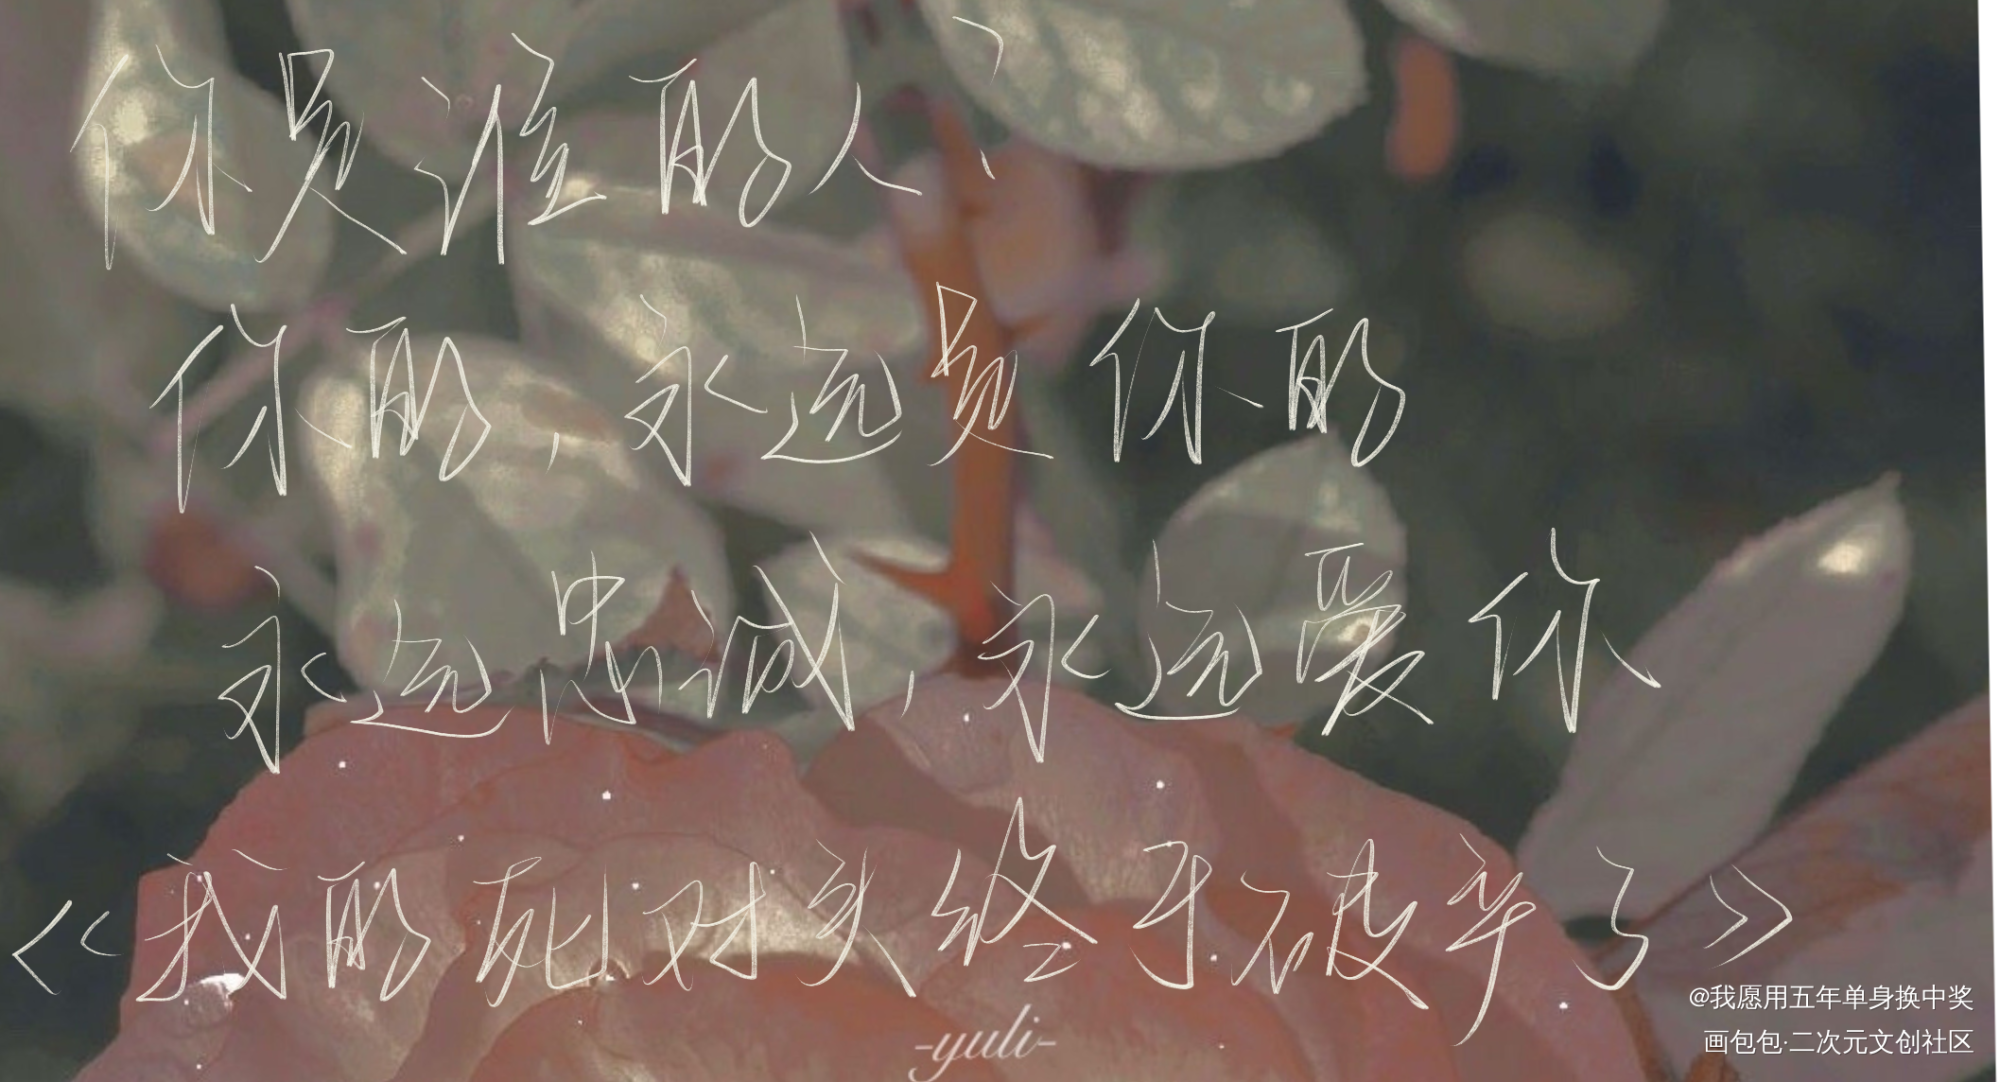 你是谁的人？
你的，永远是你的
永远忠诚，永远爱你
《我的死对头终于破产了》
-yuli-
@我愿用五年单身换中奖
画包包·二次元文创社区